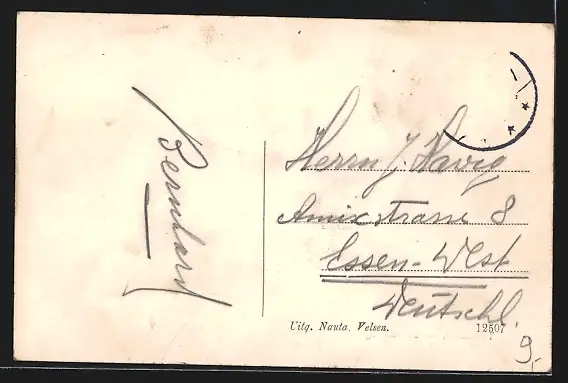 Bernhard
Herrn J. Navig
Amixstrasse 8
Essen-West
Deutschl.
Uitg. Nauta. Velsen.
12507
9,-